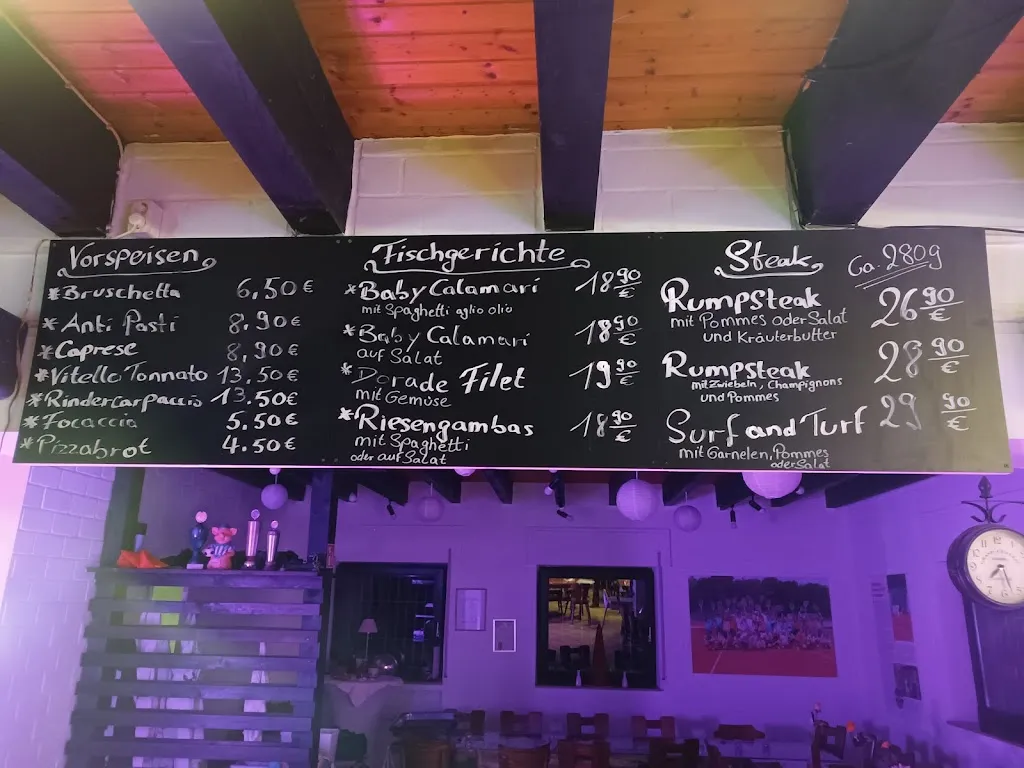 Vorspeisen
*Bruschetta 6,50€
*Anti Pasti 8.90€
*Caprese 8,90€
*Vitello Tonnato 13.50€
*Rindercarpaccio 13.50€
*Focaccia 5.50€
*Pizzabrot 4.50€
Fischgerichte
*Baby Calamari 18 90 €
mit Spaghetti aglio olio
*Baby Calamari 18 90 €
auf Salat
*Dorade Filet 19 90 €
mit Gemüse
*Riesengambas 18 90 €
mit Spaghetti
oder auf Salat
Steak Ca. 280g
Rumpsteak 26 90 €
mit Pommes oder Salat
und Kräuterbutter
Rumpsteak 28 90 €
mit Zwiebeln, Champignons
und Pommes
Surf and Turf 29 90 €
mit Garnelen, Pommes
oder Salat